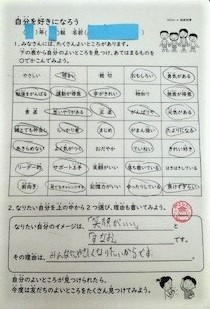 自分を好きになろう
1年
組 名前
1. みなさんには、たくさんよいところがあります。
下の表から自分のよいところを見つけ、あてはまるものを
○でかこんでみよう。
やさしい 明るい 親切 おもしろい 勇気がある
勉強をがんばる 運動が得意 字がきれい がんばりや 元気がある
素直 思いやりがある まじめ 正直 力が強い
がまん強い たよりになる
あきらめない おだやか ていねい 気がきく
リーダー的 サポート上手 笑顔がいい 落ち着いている
前向き
2. なりたい自分を上の中から2つ選び、理由も書いてみよう。
なりたい自分のイメージは、「笑顔がいい」と
「すなお」です。
その理由は、みんなとなかよくなりたいからです。
自分のよいところが見つけられたら、
今度は友だちのよいところをたくさん見つけてみよう。